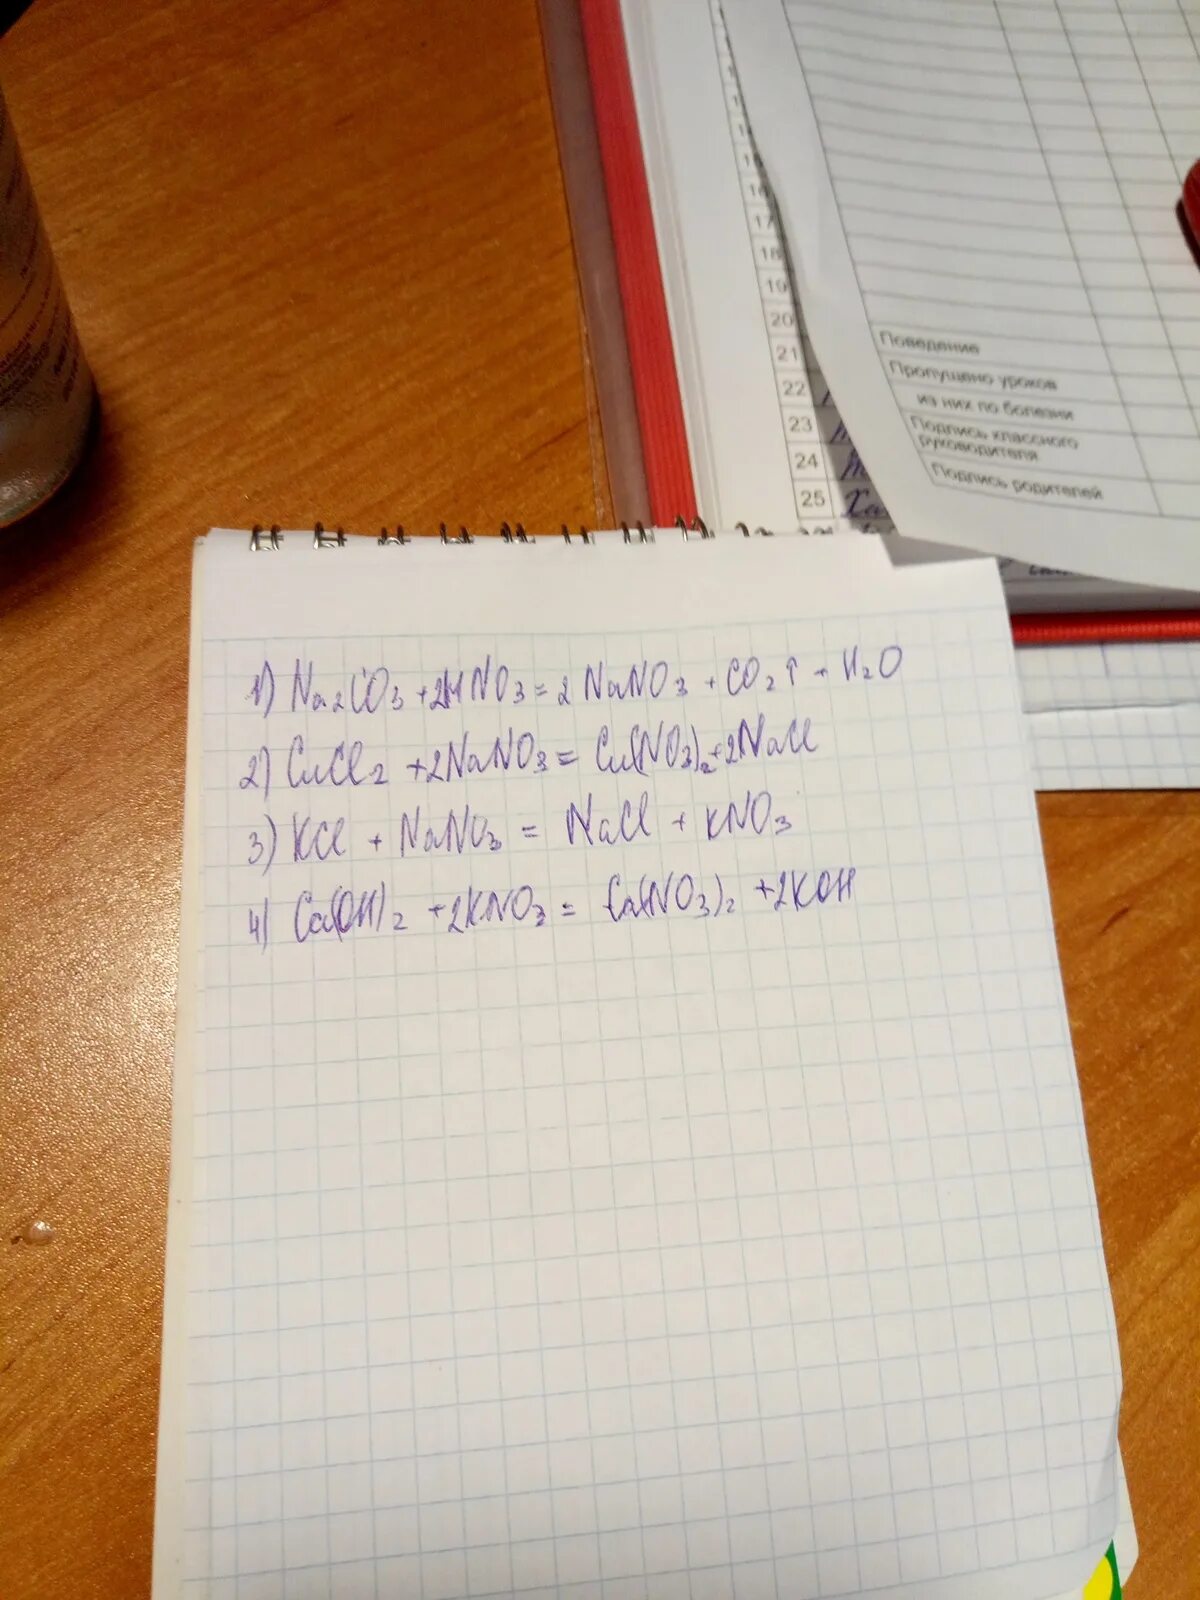 16
17
18
19
20
21
22
23
24
25 Ха
Поведение
Пропущено уроков
из них по болезни
Подпись классного
руководителя
Подпись родителей
1) Na2CO3 +2HNO3 = 2 NaNO3 + CO2↑ + H2O
2) CuCl2 +2NaNO3 = Cu(NO3)2+2NaCl
3) KCl + NaNO3 = NaCl + KNO3
4) Ca(OH)2 +2KNO3 = Ca(NO3)2 +2KOH